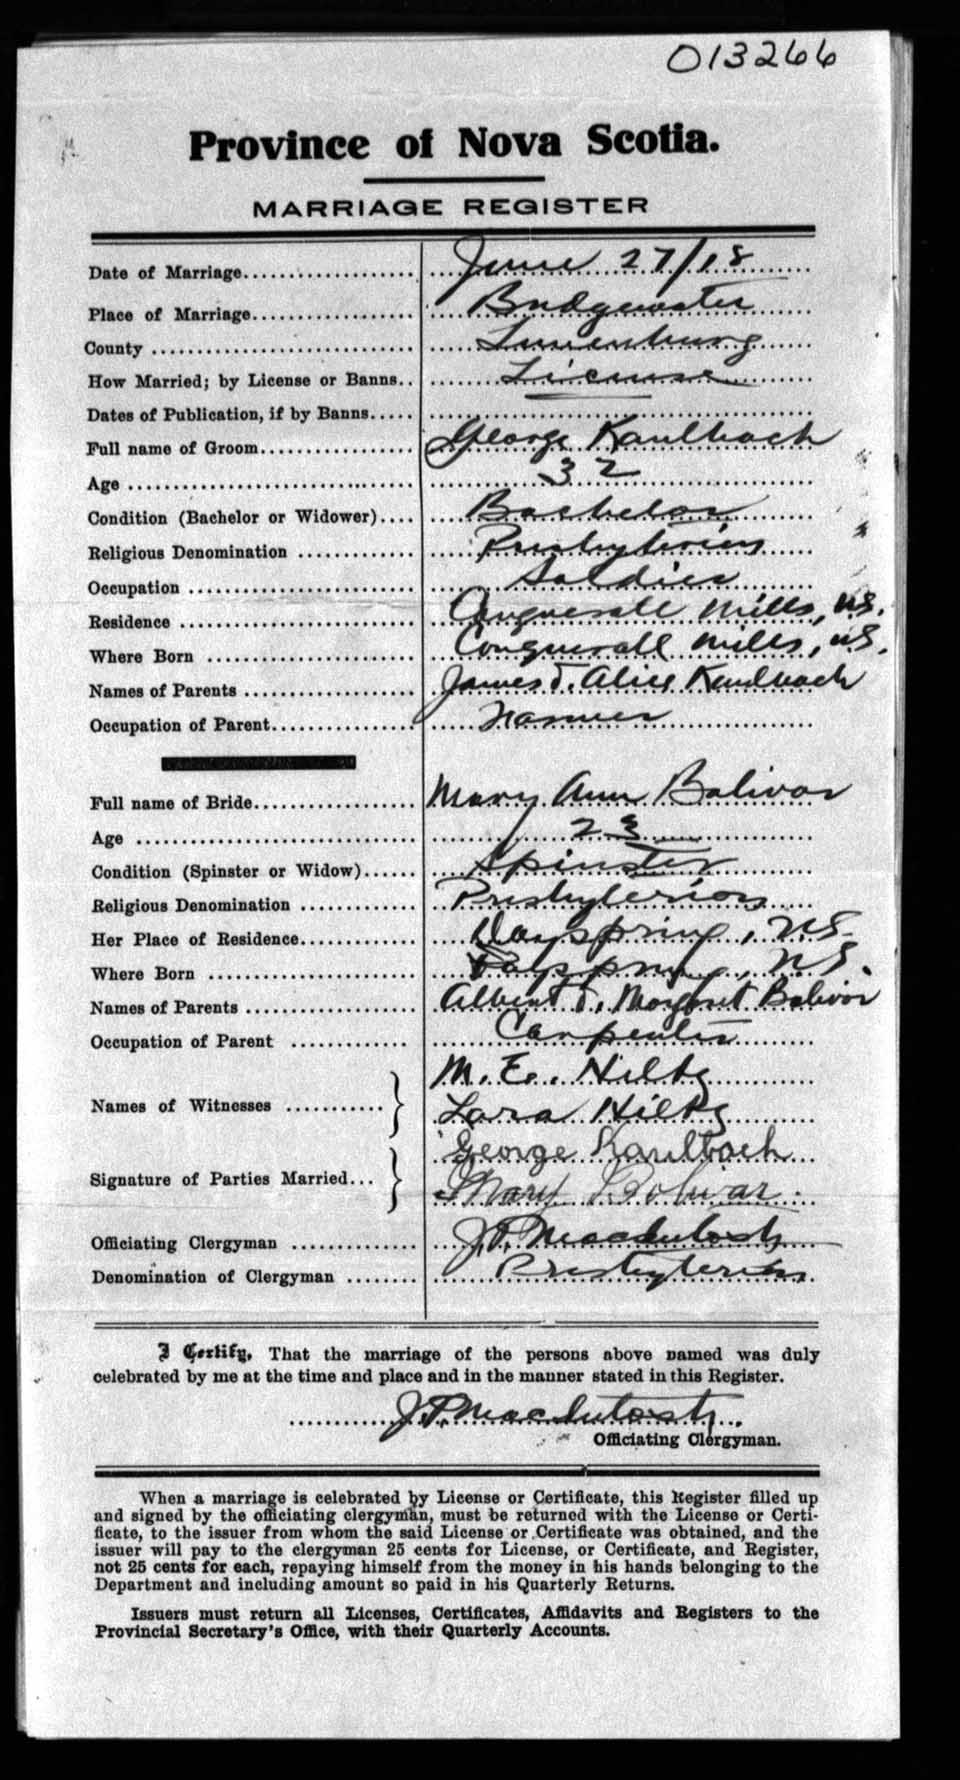 013266
Province of Nova Scotia.
MARRIAGE REGISTER
Date of Marriage.................... June 27/18
Place of Marriage.................. Bridgewater
County .............................. Lunenburg
How Married; by License or Banns.. License
Dates of Publication, if by Banns.....
Full name of Groom.................. George Kaulbach
Age ................................. 32
Condition (Bachelor or Widower).... Bachelor
Religious Denomination ............. Presbyterian
Occupation .......................... Soldier
Residence ........................... Conquerall Mills, N.S.
Where Born ........................ Conquerall Mills, N.S.
Names of Parents ................... James & Alice Kaulbach
Occupation of Parent................. Farmer
Full name of Bride................... Mary Ann Bolivar
Age ................................ 23
Condition (Spinster or Widow)...... Spinster
Religious Denomination ............. Presbyterian
Her Place of Residence............. Dayspring, N.S.
Where Born ........................ Dayspring, N.S.
Names of Parents ................... Albert & Margaret Bolivar
Occupation of Parent ............. Carpenter
Names of Witnesses ........... } M. E. Hiltz
Lara Hiltz
Signature of Parties Married... } George Kaulbach
Mary Bolivar
Officiating Clergyman .............. J.P. MacIntosh
Denomination of Clergyman ........ Presbyterian
I Certify, That the marriage of the persons above named was duly
celebrated by me at the time and place and in the manner stated in this Register.
J.P. MacIntosh.
Officiating Clergyman.
When a marriage is celebrated by License or Certificate, this Register filled up
and signed by the officiating clergyman, must be returned with the License or Certi-
ficate, to the issuer from whom the said License or Certificate was obtained, and the
issuer will pay to the clergyman 25 cents for License, or Certificate, and Register,
not 25 cents for each, repaying himself from the money in his hands belonging to the
Department and including amount so paid in his Quarterly Returns.
Issuers must return all Licenses, Certificates, Affidavits and Registers to the
Provincial Secretary's Office, with their Quarterly Accounts.